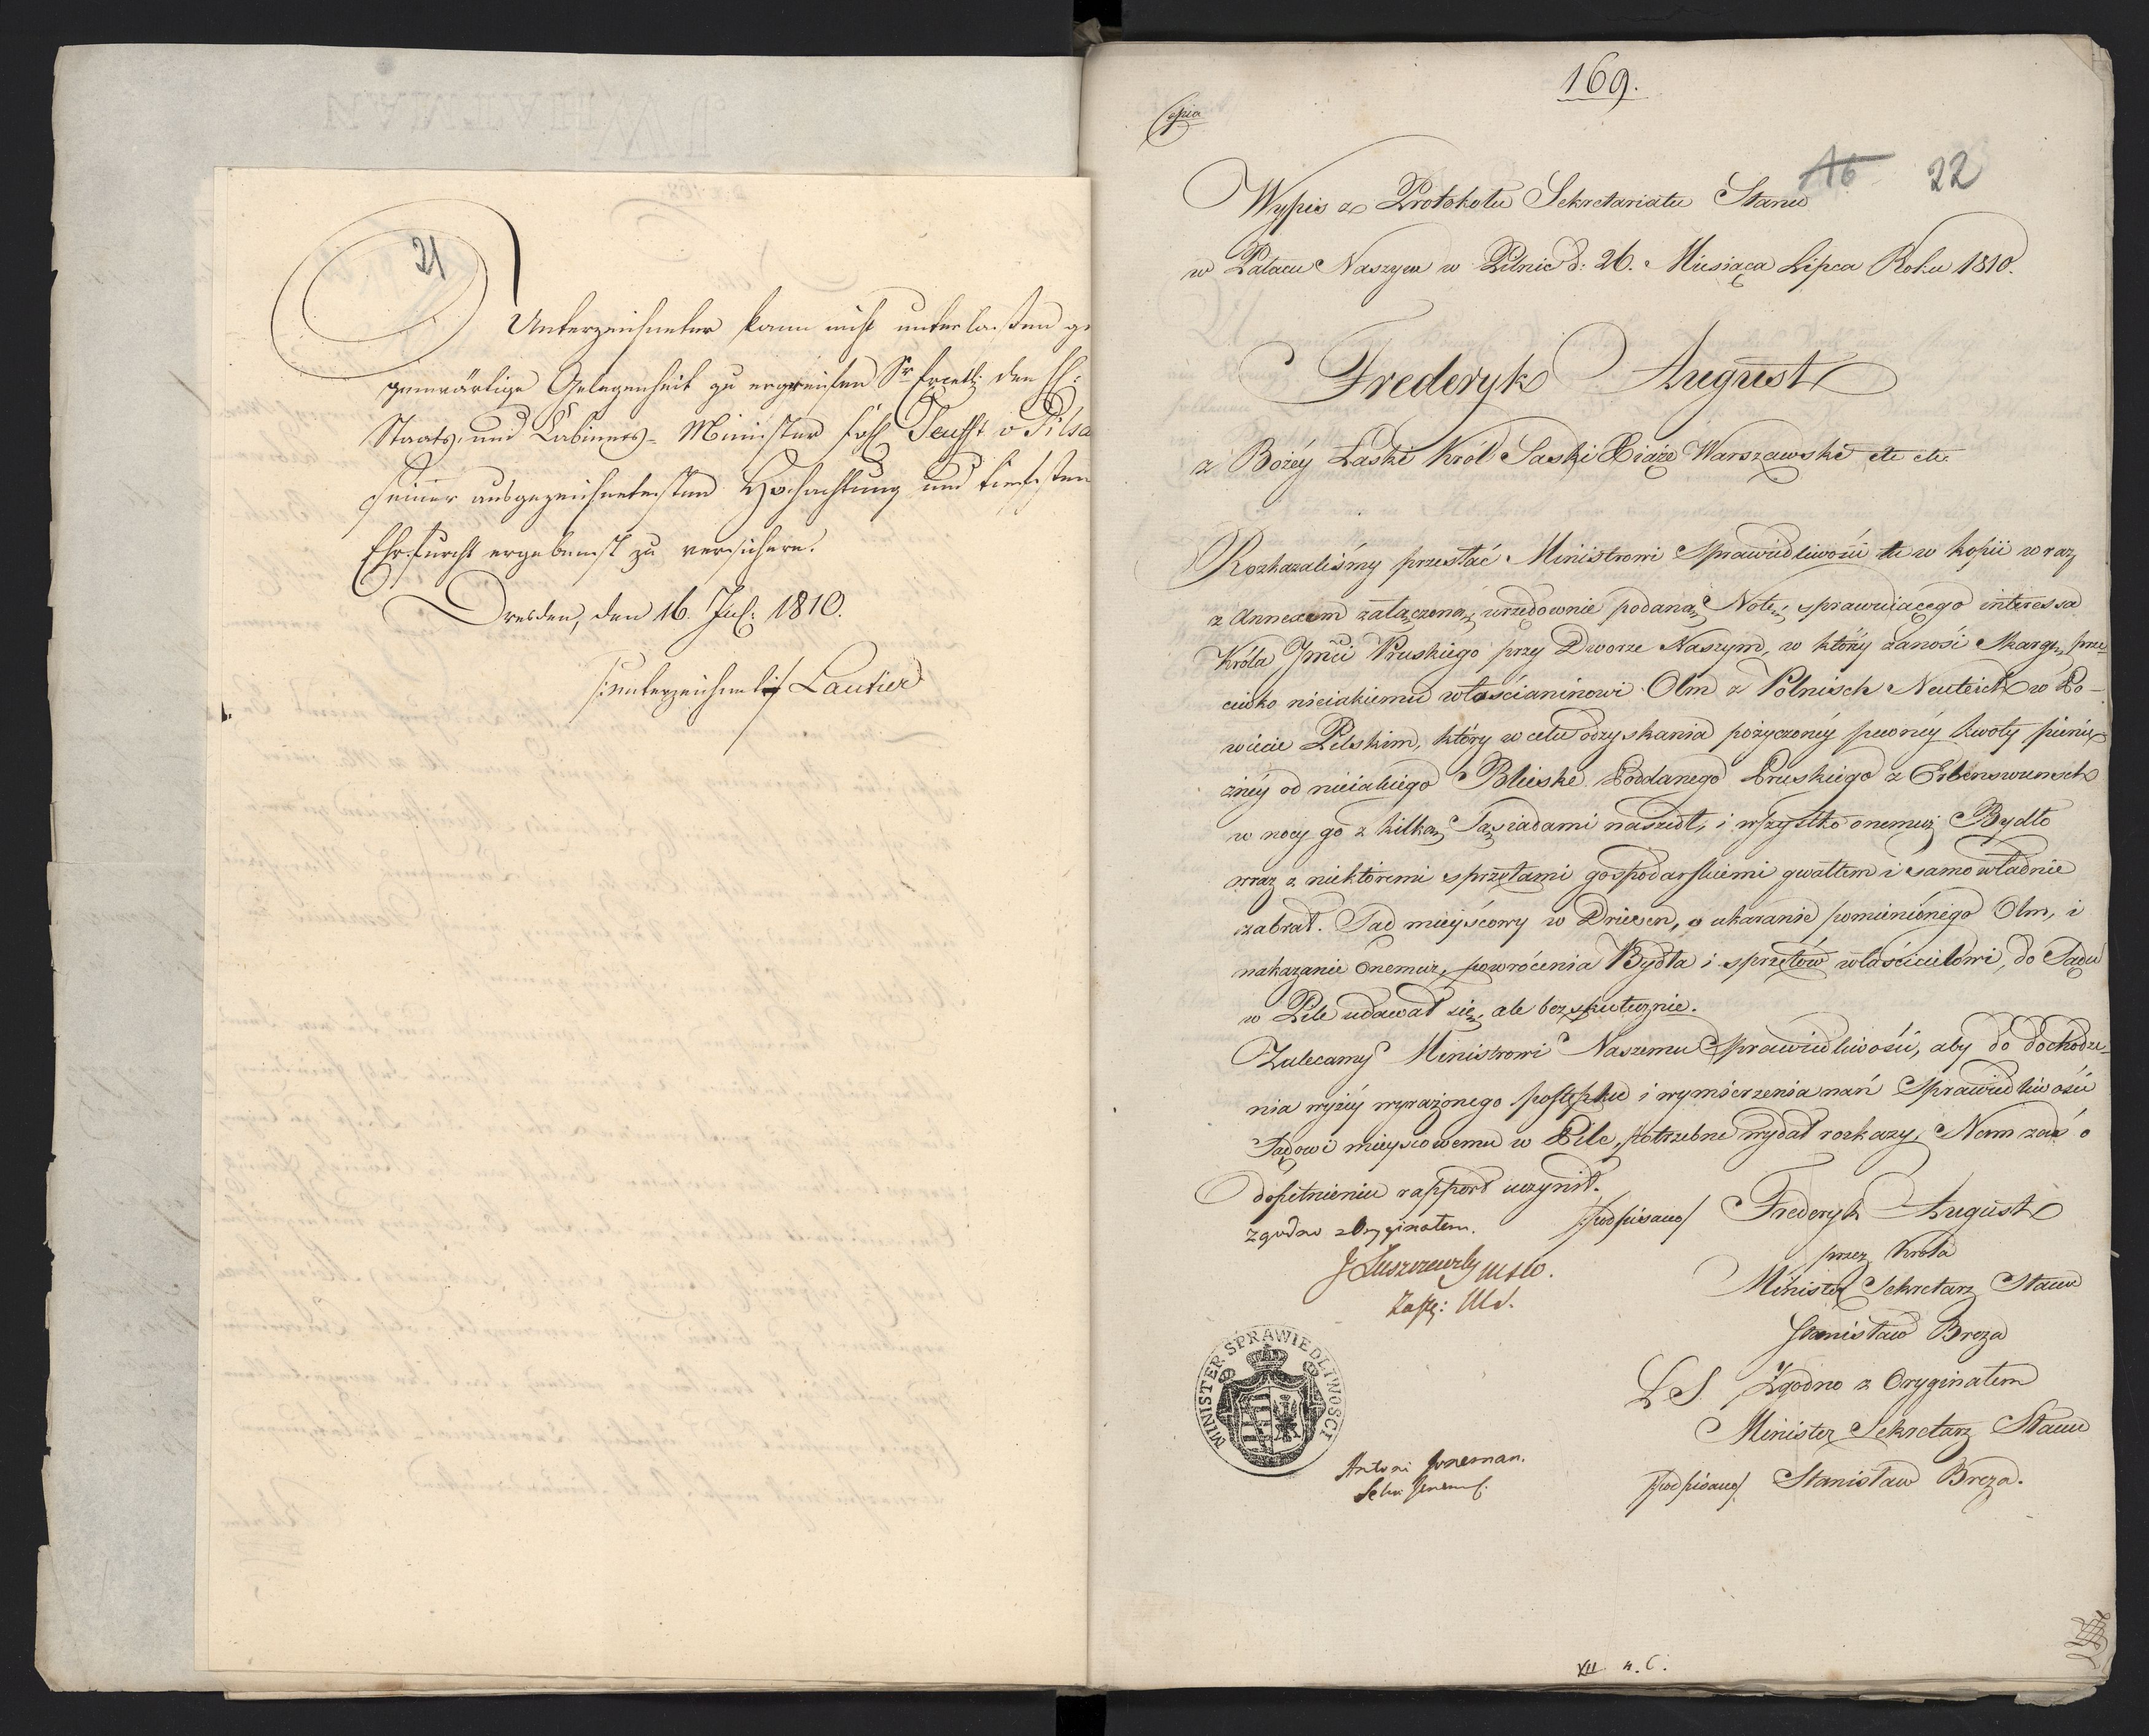 21
Unterzeichneter kann nicht unterlaßen ge
genwärtige Gelegenheit zu ergreifen Sr. Excell: den H:
Staats- und Cabinets-Minister Senfft v Pilsa
seiner ausgezeichnetesten Hochachtung und tiefsten
Ehrfurcht ergebenst zu versichern.
Dresden, den 16. Jul: 1810.
/:unterzeichnet:/ Lautier
169.
Copia
16 22
Wypis z Protokołu Sekretariatu Stanu
w Pałacu Naszym w Pilnic d: 26. Miesiąca Lipca Roku 1810.
Frederyk August
z Bożéy Łaski Król Saski Xiąże Warszawski etc etc
Rozkazaliśmy przesłać Ministrowi Sprawiedliwości tu w kopii wraz
z Annexem załączoną, urzędownie podaną Notę, sprawuiącego interessa
Króla Jmci Pruskiego przy Dworze Naszym, w któréy zanosi skargę, prze-
ciwko nieiakiemu włościaninowi Olm z Polnisch Neuteich w Po-
wiecie Pilskim, który w celu odzyskania pożyczonéy pewnéy kwoty pienię
żnéy od nieiakiego Blieske Poddanego Pruskiego z Erbenswunsch
w nocy go z kilką Sąsiadami naszedł, i wszystko onemuż Bydło
wraz z niektóremi sprzętami gospodarskiemi gwałtem i samowładnie
zabrał. Sąd mieyscowy w Driesen, o ukaranie pomienionego Olm, i
nakazanie onemuż, powrócenia Bydła i sprzętów właścicielowi, do Sądu
w Pile udawał się, ale bezskutecznie.
Zalecamy Ministrowi Naszemu Sprawiedliwości, aby do dochodze-
nia wyżéy wyrażonego postępku i wymierzenia nań Sprawiedliwości
Sądowi mieyscowemu w Pile, potrzebne wydał rozkazy, Nam zaś o
dopełnieniu rapport uczynił.
Zgodno z Oryginałem.
/podpisano/ Frederyk August
przez Króla
Minister Sekretarz Stanu
Stanisław Breza
J Łuszczewski MSW.
Zastę: MS.
MINISTER SPRAWIEDLIWOSCI
L S. Zgodno z Oryginałem
Minister Sekretarz Stanu
/podpisano/ Stanisław Breza.
Antoni
Sekr
XII 4. C.